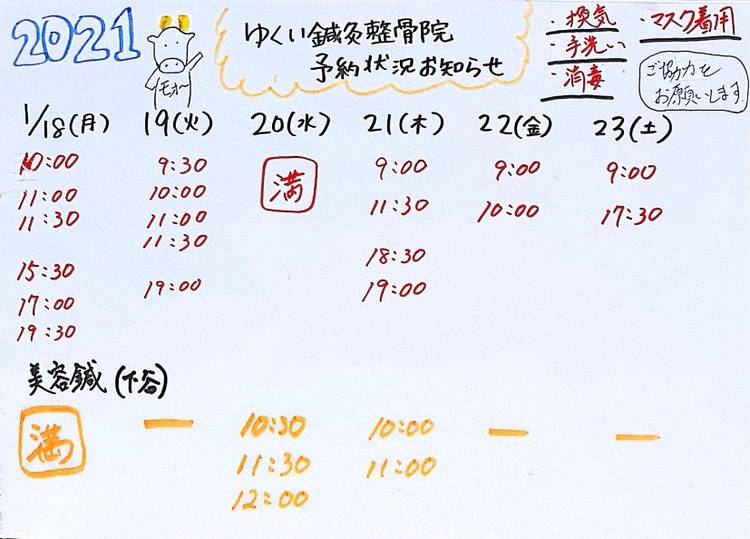 2021
モォ〜
ゆくい鍼灸整骨院
予約状況お知らせ
・換気
・手洗い
・消毒
・マスク着用
ご協力を
お願いします
1/18(月) 19(火) 20(水) 21(木) 22(金) 23(土)
10:00 9:30 満 9:00 9:00 9:00
11:00 10:00 11:30 10:00 17:30
11:30 11:00
11:30
15:30 18:30
17:00 19:00 19:00
19:30
美容鍼(下谷)
満 ー 10:30 10:00 ー ー
11:30 11:00
12:00